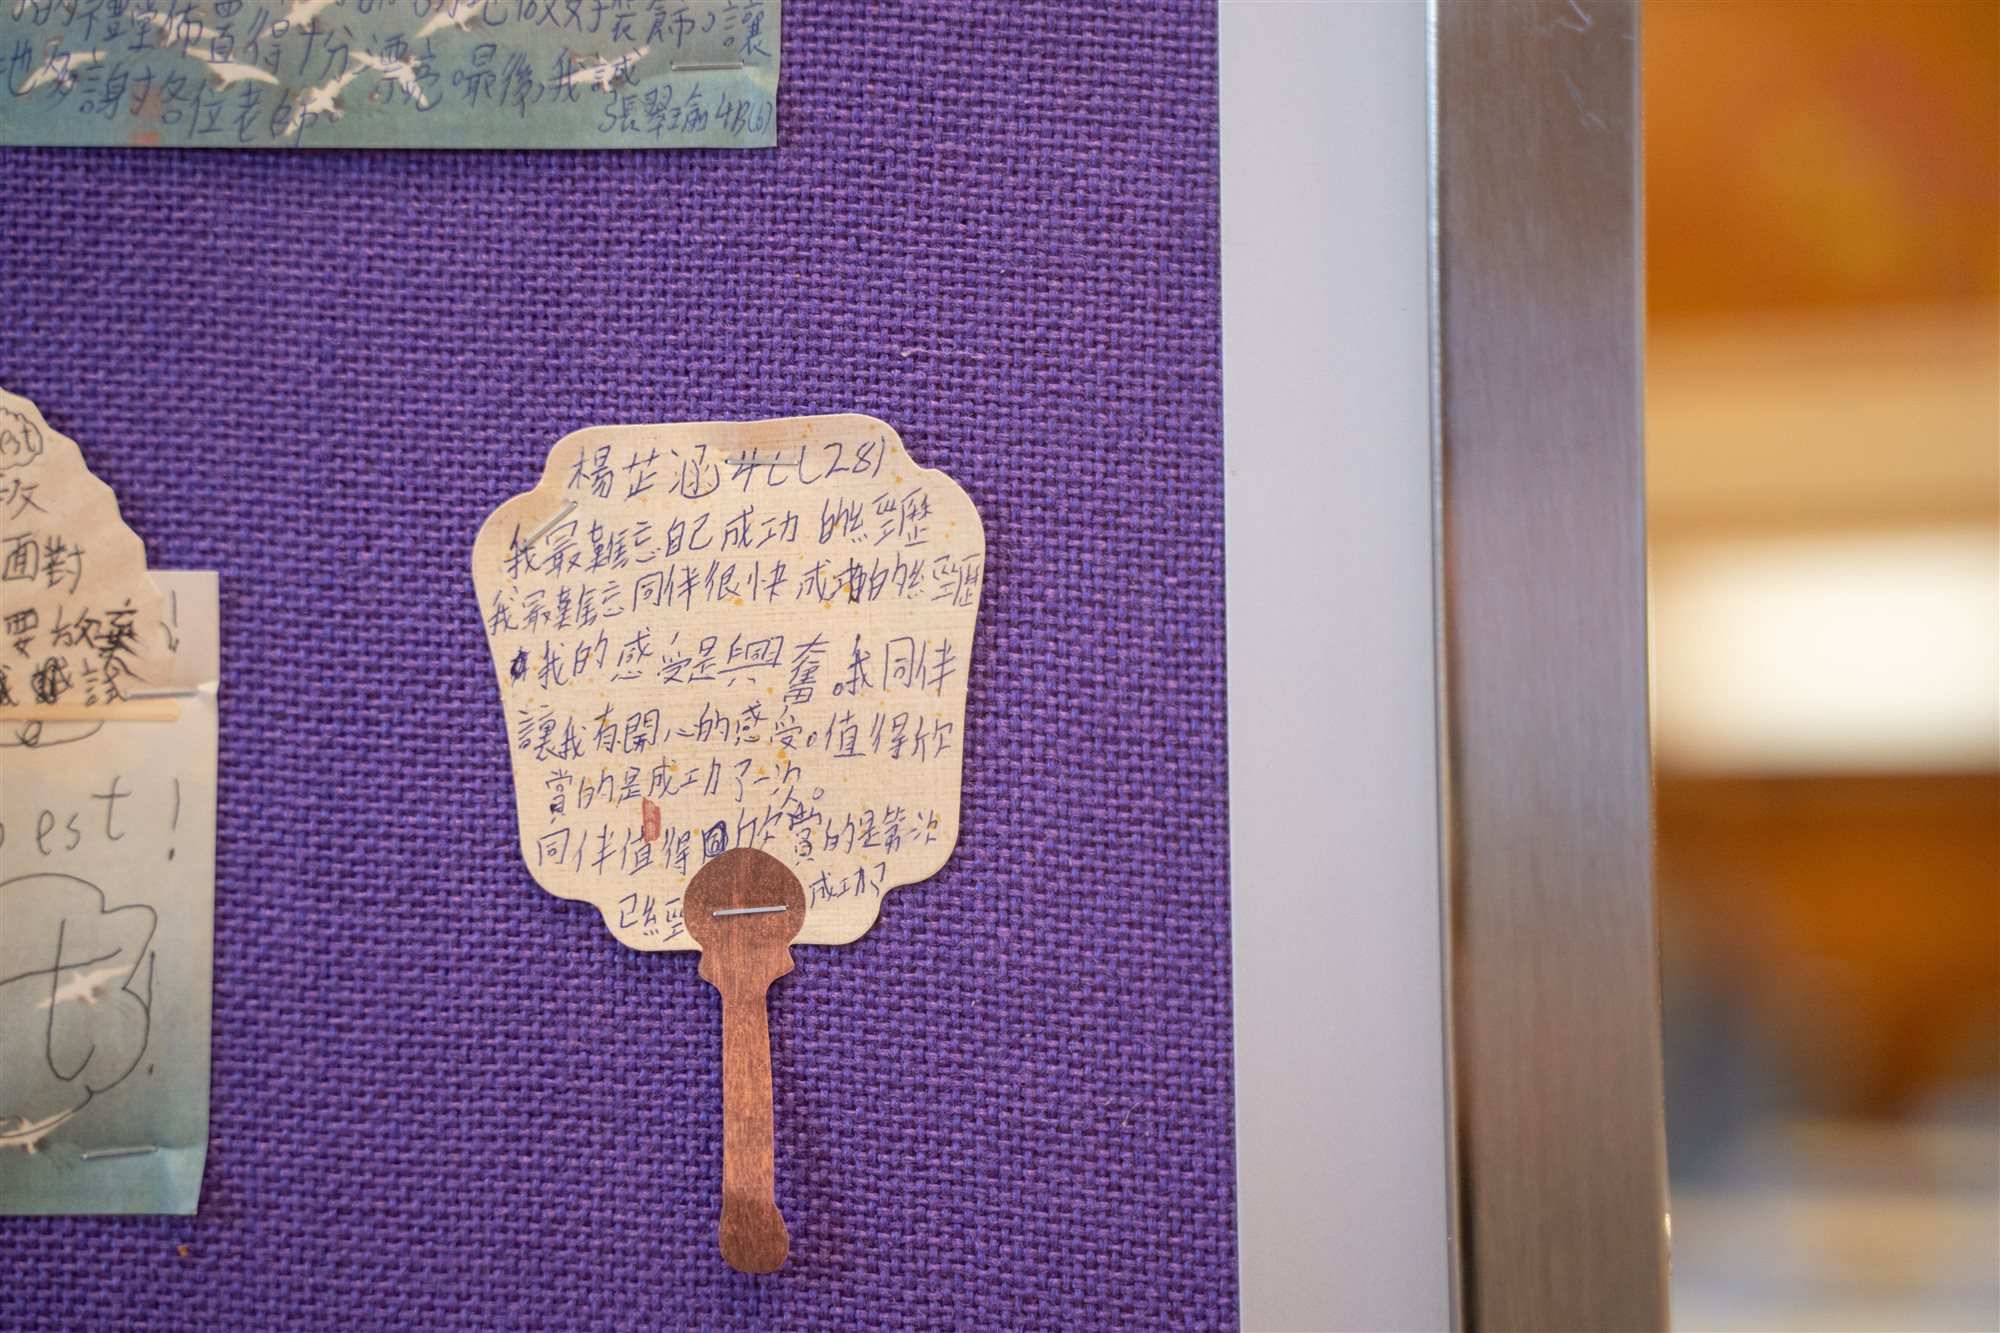 的禮堂佈置得十分漂亮
最後,我誠
地多謝各位老師。
張翠瑜 4B(6)
est
面對
要放棄
試
est!
t!
楊芷涵 4C(28)
我最難忘自己成功的經歷
我最難忘同伴很快成功的經歷
我的感受是興奮。我同伴
讓我有開心的感受。值得欣
賞的是成功了一次。
同伴值得欣賞的是第次
已經 成功了